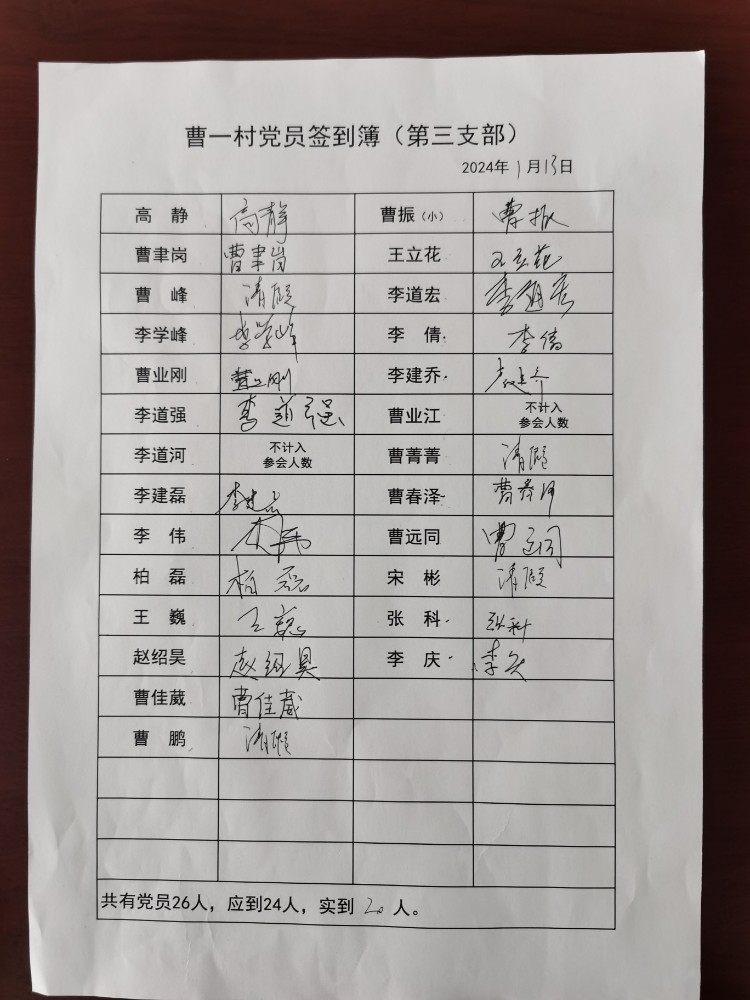 曹一村党员签到簿（第三支部）
2024年1月13日
高 静 高静 曹振（小） 曹振
曹聿岗 曹聿岗 王立花 王立花
曹 峰 请假 李道宏 李道宏
李学峰 李学峰 李 倩 李倩
曹业刚 曹业刚 李建乔 李建乔
李道强 李道强 曹业江 不计入
参会人数
李道河 不计入
参会人数 曹菁菁 请假
李建磊 李建磊 曹春泽 曹春泽
李 伟 李伟 曹远同 曹远同
柏 磊 柏磊 宋 彬 请假
王 巍 王巍 张 科 张科
赵绍昊 赵绍昊 李 庆 李庆
曹佳葳 曹佳葳
曹 鹏 请假
共有党员26人，应到24人，实到 20 人。